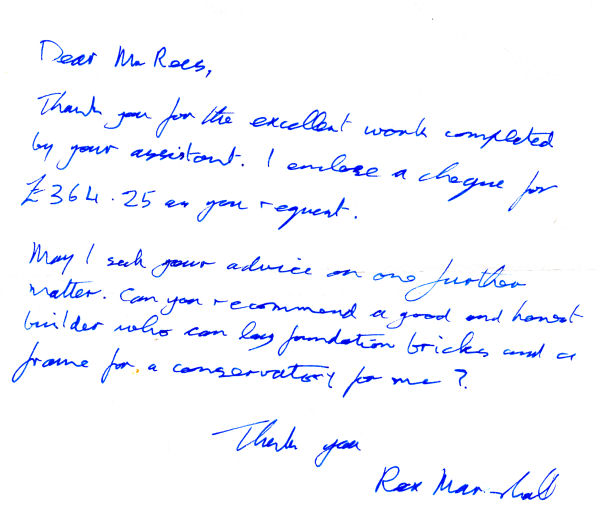 Dear Mr Rees,
Thank you for the excellent work completed
by your assistant. I enclose a cheque for
£364.25 as you request.
May I seek your advice on one further
matter. Can you recommend a good and honest
builder who can lay foundation bricks and a
frame for a conservatory for me?
Thank you
Rex Marshall